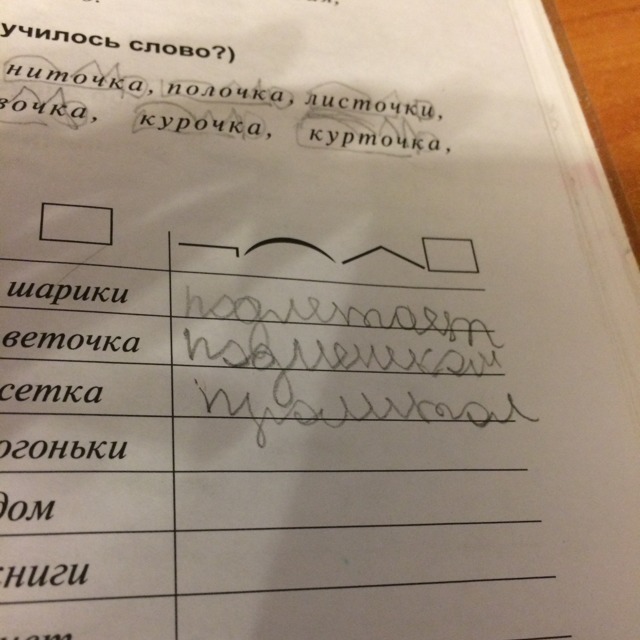 училось слово?)
ниточка, полочка, листочки,
вочка, курочка, курточка,
шарики подлетает
веточка
сетка
огоньки
дом
книги